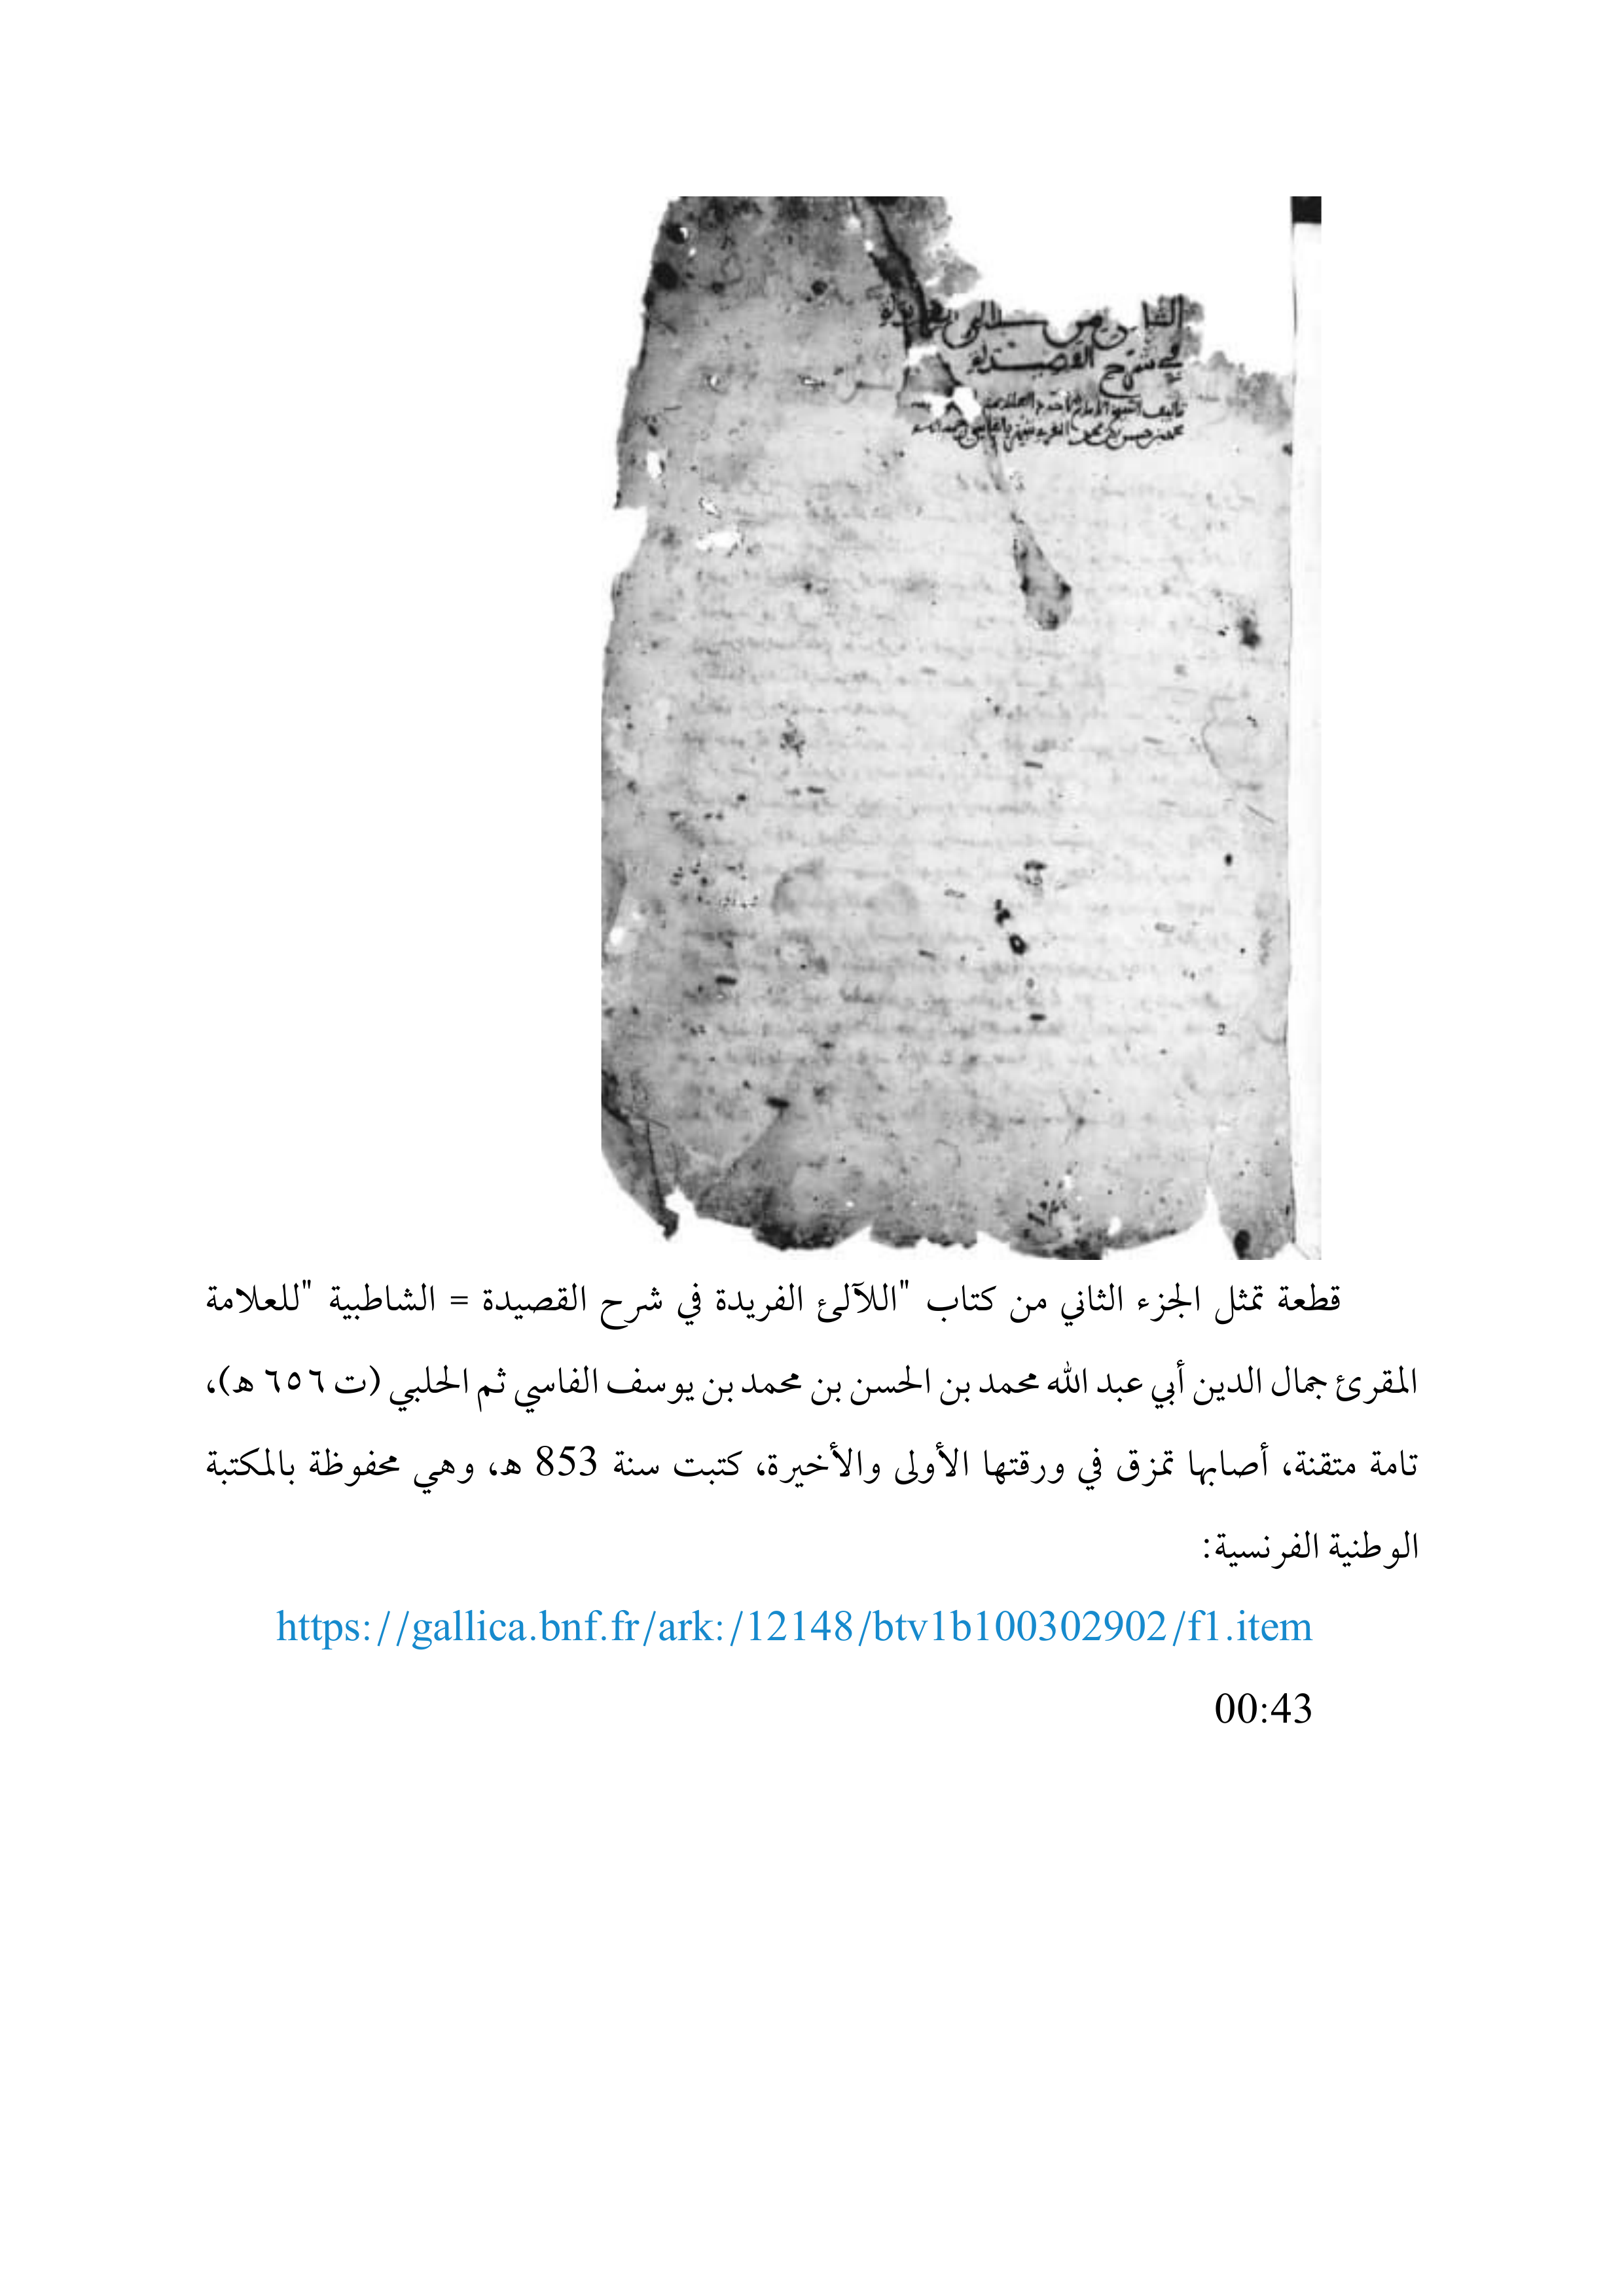 الثاني من اللآلئ الفريدة
في شرح القصيدة
تأليف الشيخ الإمام
محمد بن حسن بن محمد
قطعة تمثل الجزء الثاني من كتاب "اللآلئ الفريدة في شرح القصيدة = الشاطبية "للعلامة
المقرئ جمال الدين أبي عبد الله محمد بن الحسن بن محمد بن يوسف الفاسي ثم الحلبي (ت ٦٥٦ ه)،
تامة متقنة، أصابها تمزق في ورقتها الأولى والأخيرة، كتبت سنة 853 ه، وهي محفوظة بالمكتبة
الوطنية الفرنسية:
https://gallica.bnf.fr/ark:/12148/btv1b100302902/f1.item
00:43